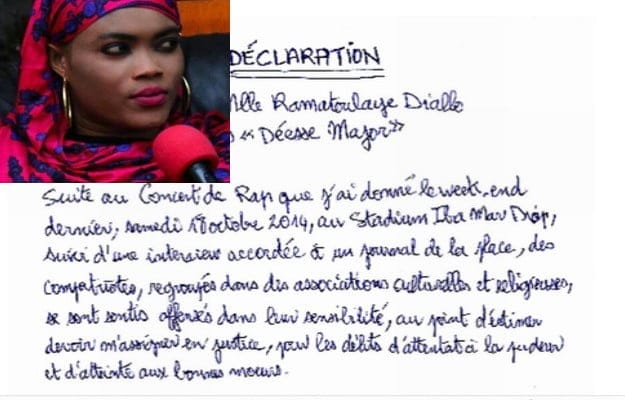 DÉCLARATION
Mlle Ramatoulaye Diallo
« Déesse Major »
Suite au Concert de Rap que j'ai donné le week-end
dernier, samedi 18 octobre 2014, au Stadium Iba Mar Diop,
suivi d'une interview accordée à un journal de la place, des
compatriotes, regroupés dans des associations culturelles et religieuses,
se sont sentis offensés dans leur sensibilité, au point d'estimer
devoir m'assigner en justice, pour les délits d'attentat à la pudeur
et d'atteinte aux bonnes moeurs.